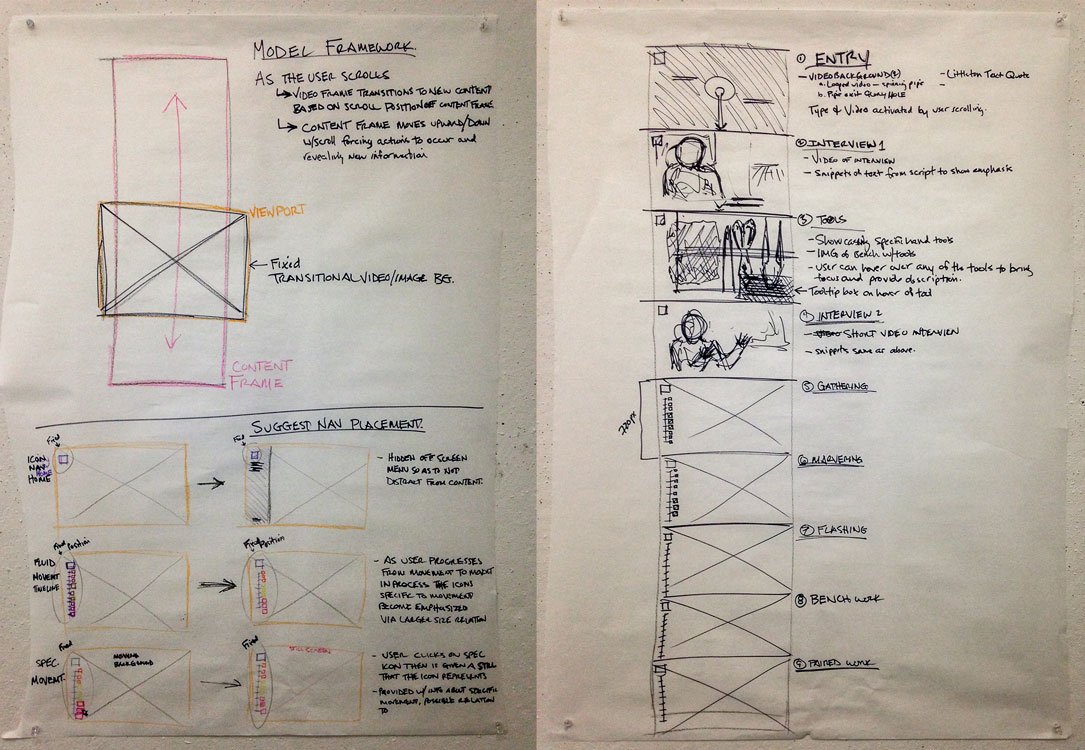 MODEL FRAMEWORK.
AS THE USER SCROLLS
↳ VIDEO FRAME TRANSITIONS TO NEW CONTENT
BASED ON SCROLL POSITION OF CONTENT FRAME
↳ CONTENT FRAME MOVES UPWARD/DOWN
W/SCROLL FORCING ACTIONS TO OCCUR AND
REVEALING NEW INFORMATION
VIEWPORT
← Fixed
TRANSITIONAL VIDEO/IMAGE BG.
CONTENT
FRAME
SUGGEST NAV PLACEMENT.
Fixed
ICON
NAV
HOME
Fixed
- HIDDEN OFF SCREEN
MENU SO AS TO NOT
DISTRACT FROM CONTENT.
Fixed Position
FLUID
MOVEMENT
TIMELINE
Fixed Position
- AS USER PROGRESSES
FROM MOVEMENT TO MOVEMENT
IN PROCESS THE ICONS
SPECIFIC TO MOVEMENT
BECOME EMPHASIZED
VIA LARGER SIZE RELATION
Fixed
SPEC.
MOVEMENT.
MOVING
BACKGROUND
Fixed
STILL SCREEN
- USER CLICKS ON SPEC
ICON THEN IS GIVEN A STILL
THAT THE ICON REPRESENTS
- PROVIDED W/ INFO ABOUT SPECIFIC
MOVEMENT, POSSIBLE RELATION
TO
① ENTRY
- VIDEO BACKGROUND
a. Looped video - spinning pipe
b. Pipe exit
HOLE
- Quote
Type & Video activated by user scrolling.
② INTERVIEW 1
- VIDEO OF INTERVIEW
- Snippets of text from script to show emphasis
③ TOOLS
- Showcasing specific hand tools
- IMG of Bench w/tools
- user can hover over any of the tools to bring
focus and provide description.
← Tooltip box on hover of tool
④ INTERVIEW 2
- SHORT VIDEO INTERVIEW
- snippets same as above.
720px
⑤ GATHERING
⑥ MARVERING
⑦ FLASHING
⑧ BENCH WORK
⑨ PAIRED WORK